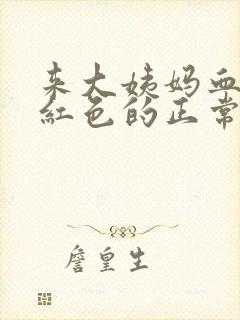 来大姨妈血
红色的正常
詹皇生